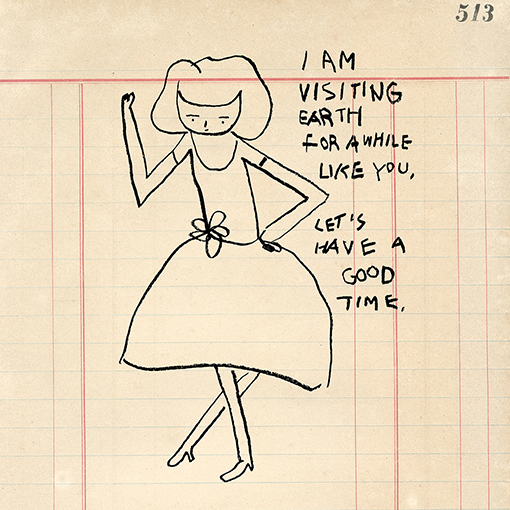 513
I AM
VISITING
EARTH
FOR AWHILE
LIKE YOU.
LET'S
HAVE A
GOOD
TIME.